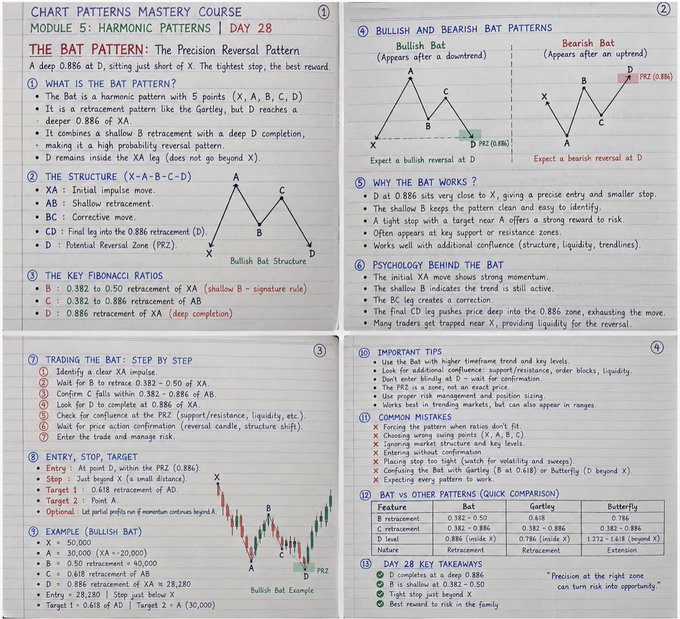 CHART PATTERNS MASTERY COURSE
1
MODULE 5: HARMONIC PATTERNS | DAY 28
THE BAT PATTERN: The Precision Reversal Pattern
A deep 0.886 at D, sitting just short of X. The tightest stop, the best reward.
1 WHAT IS THE BAT PATTERN?
• The Bat is a harmonic pattern with 5 points (X, A, B, C, D)
• It is a retracement pattern like the Gartley, but D reaches a
deeper 0.886 of XA.
• It combines a shallow B retracement with a deep D completion,
making it a high probability reversal pattern.
• D remains inside the XA leg (does not go beyond X).
2 THE STRUCTURE (X-A-B-C-D)
• XA : Initial impulse move.
• AB : Shallow retracement.
• BC : Corrective move.
• CD : Final leg into the 0.886 retracement (D).
• D : Potential Reversal Zone (PRZ).
A
C
B
X
D
Bullish Bat Structure
3 THE KEY FIBONACCI RATIOS
• B : 0.382 to 0.50 retracement of XA (shallow B - signature rule)
• C : 0.382 to 0.886 retracement of AB
• D : 0.886 retracement of XA (deep completion)
2
4 BULLISH AND BEARISH BAT PATTERNS
Bullish Bat
(Appears after a downtrend)
A
C
B
X
D PRZ (0.886)
Expect a bullish reversal at D
Bearish Bat
(Appears after an uptrend)
D
PRZ (0.886)
B
X
C
A
Expect a bearish reversal at D
5 WHY THE BAT WORKS ?
• D at 0.886 sits very close to X, giving a precise entry and smaller stop.
• The shallow B keeps the pattern clean and easy to identify.
• A tight stop with a target near A offers a strong reward to risk.
• Often appears at key support or resistance zones.
• Works well with additional confluence (structure, liquidity, trendlines).
6 PSYCHOLOGY BEHIND THE BAT
• The initial XA move shows strong momentum.
• The shallow B indicates the trend is still active.
• The BC leg creates a correction.
• The final CD leg pushes price deep into the 0.886 zone, exhausting the move.
• Many traders get trapped near X, providing liquidity for the reversal.
3
7 TRADING THE BAT: STEP BY STEP
1 Identify a clear XA impulse.
2 Wait for B to retrace 0.382 - 0.50 of XA.
3 Confirm C falls within 0.382 - 0.886 of AB.
4 Look for D to complete at 0.886 of XA.
5 Check for confluence at the PRZ (support/resistance, liquidity, etc.).
6 Wait for price action confirmation (reversal candle, structure shift).
7 Enter the trade and manage risk.
8 ENTRY, STOP, TARGET
• Entry : At point D, within the PRZ (0.886).
• Stop : Just beyond X (a small distance).
• Target 1 : 0.618 retracement of AD.
• Target 2 : Point A.
• Optional : Let partial profits run if momentum continues beyond A.
9 EXAMPLE (BULLISH BAT)
• X = 50,000
• A = 30,000 (XA = -20,000)
• B = 0.50 retracement = 40,000
• C = 0.618 retracement of AB
• D = 0.886 retracement of XA ≈ 28,280
• Entry = 28,280 | Stop just below X
• Target 1 = 0.618 of AD | Target 2 = A (30,000)
X
B
C
A
D
PRZ
Bullish Bat Example
4
10 IMPORTANT TIPS
• Use the Bat with higher timeframe trend and key levels.
• Look for additional confluence: support/resistance, order blocks, liquidity.
• Don't enter blindly at D - wait for confirmation.
• The PRZ is a zone, not an exact price.
• Use proper risk management and position sizing.
• Works best in trending markets, but can also appear in ranges.
11 COMMON MISTAKES
✗ Forcing the pattern when ratios don't fit.
✗ Choosing wrong swing points (X, A, B, C).
✗ Ignoring market structure and key levels.
✗ Entering without confirmation.
✗ Placing stop too tight (watch for volatility and sweeps).
✗ Confusing the Bat with Gartley (B at 0.618) or Butterfly (D beyond X).
✗ Expecting every pattern to work.
12 BAT vs OTHER PATTERNS (QUICK COMPARISON)
Feature Bat Gartley Butterfly
B retracement 0.382 - 0.50 0.618 0.786
C retracement 0.382 - 0.886 0.382 - 0.886 0.382 - 0.886
D level 0.886 (inside X) 0.786 (inside X) 1.272 - 1.618 (beyond X)
Nature Retracement Retracement Extension
13 DAY 28 KEY TAKEAWAYS
✓ D completes at a deep 0.886
✓ B is shallow at 0.382-0.50
✓ Tight stop just beyond X
✓ Best reward to risk in the family
"Precision at the right zone
can turn risk into opportunity."